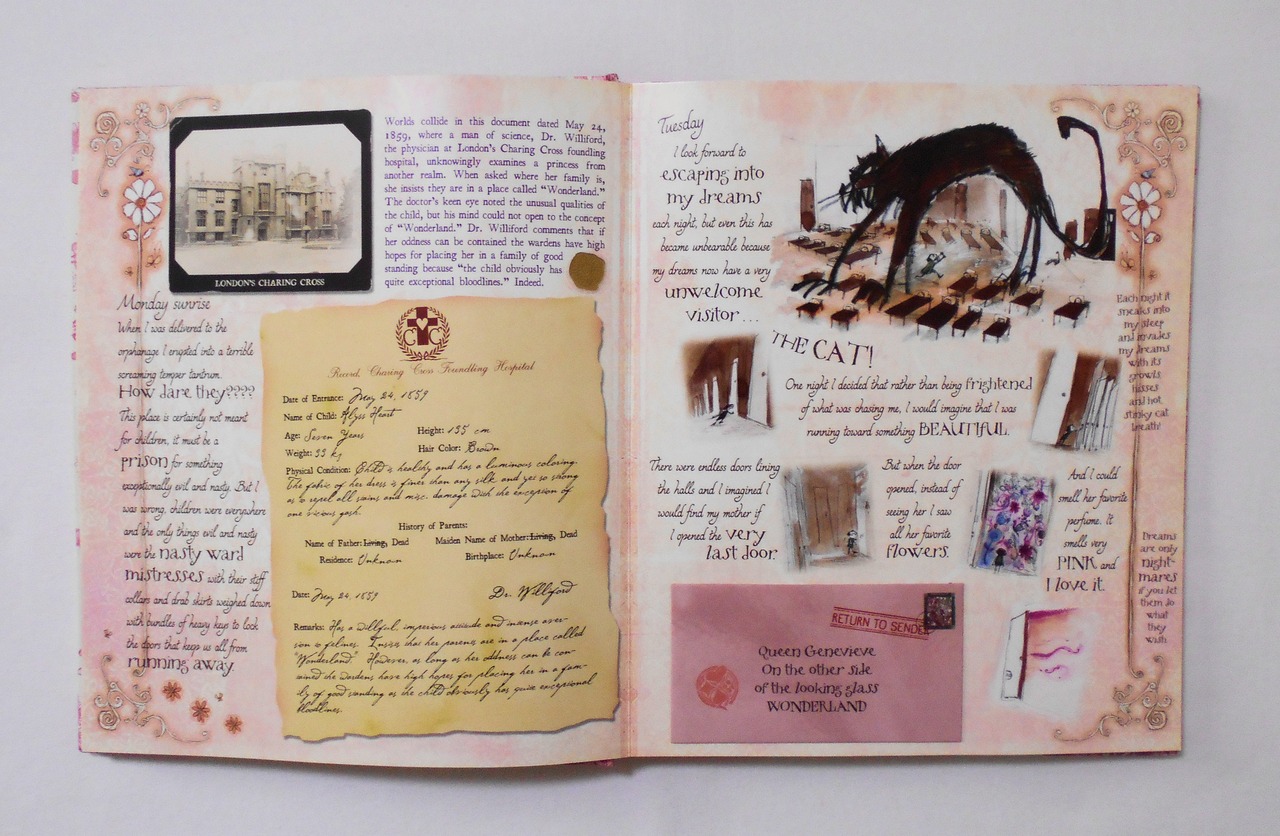 LONDON'S CHARING CROSS
Worlds collide in this document dated May 24,
1859, where a man of science, Dr. Williford,
the physician at London's Charing Cross foundling
hospital, unknowingly examines a princess from
another realm. When asked where her family is,
she insists they are in a place called "Wonderland."
The doctor's keen eye noted the unusual qualities of
the child, but his mind could not open to the concept
of "Wonderland." Dr. Williford comments that if
her oddness can be contained the wardens have high
hopes for placing her in a family of good
standing because "the child obviously has
quite exceptional bloodlines." Indeed.
Monday sunrise
When I was delivered to the
orphanage I erupted into a terrible
screaming temper tantrum.
How dare they????
This place is certainly not meant
for children, it must be a
prison for something
exceptionally evil and nasty. But I
was wrong, children were everywhere
and the only things evil and nasty
were the nasty ward
mistresses with their stiff
collars and drab skirts weighed down
with bundles of heavy keys to lock
the doors that keep us all from
running away.
C C
Record, Charing Cross Foundling Hospital
Date of Entrance: May 24, 1859
Name of Child: Alyss Heart
Age: Seven Years Height: 135 cm
Weight: 33 kg Hair Color: Brown
Physical Condition: Child is healthy and has a luminous coloring.
The fabric of her dress is finer than any silk and yet so strong
as to repel all stains and misc. damage with the exception of
one vicious gash.
History of Parents:
Name of Father: Living, Dead Maiden Name of Mother: Living, Dead
Residence: Unknown Birthplace: Unknown
Date: May 24, 1859 Dr. Williford
Remarks: Has a willful, imperious attitude and intense aver-
sion to felines. Insists that her parents are in a place called
"Wonderland." However, as long as her oddness can be con-
tained the wardens have high hopes for placing her in a fam-
ily of good standing as the child obviously has quite exceptional
bloodlines.
Tuesday
I look forward to
escaping into
my dreams
each night, but even this has
become unbearable because
my dreams now have a very
unwelcome
visitor...
THE CAT!
One night I decided that rather than being frightened
of what was chasing me, I would imagine that I was
running toward something BEAUTIFUL.
There were endless doors lining
the halls and I imagined I
would find my mother if
I opened the very
last door.
But when the door
opened, instead of
seeing her I saw
all her favorite
flowers.
And I could
smell her favorite
perfume. It
smells very
PINK and
I love it.
RETURN TO SENDER
Queen Genevieve
On the other side
of the looking glass
WONDERLAND
Each night it
sneaks into
my sleep
and invades
my dreams
with its
growls
hisses
and hot
stinky cat
breath!
Dreams
are only
night-
mares
if you let
them so
what
they
wish.